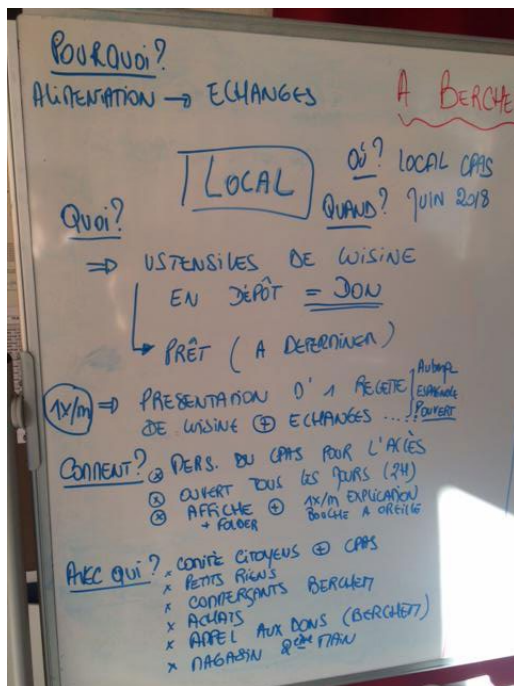 POURQUOI?
ALIMENTATION → ECHANGES
A BERCHE
1 LOCAL
OÙ? LOCAL CPAS
QUAND? JUIN 2018
QUOI?
⇒ USTENSILES DE CUISINE
EN DÉPÔT = DON
PRÊT (A DETERMINER)
1x/m ⇒ PRESENTATION D'1 RECETTE
DE CUISINE ⊕ ECHANGES ...
ESPAGNOLE
COMMENT? ⊗ PERS. DU CPAS POUR L'ACCÈS
⊗ OUVERT TOUS LES JOURS (2H)
⊗ AFFICHE ⊕ 1x/m EXPLICATION
+ FOLDER BOUCHE A OREILLE
AVEC QUI? x COMITÉ CITOYENS ⊕ CPAS
x PETITS RIENS
x COMMERÇANTS BERCHEM
x ACHATS
x APPEL AUX DONS (BERCHEM)
x MAGASIN 2ème MAIN